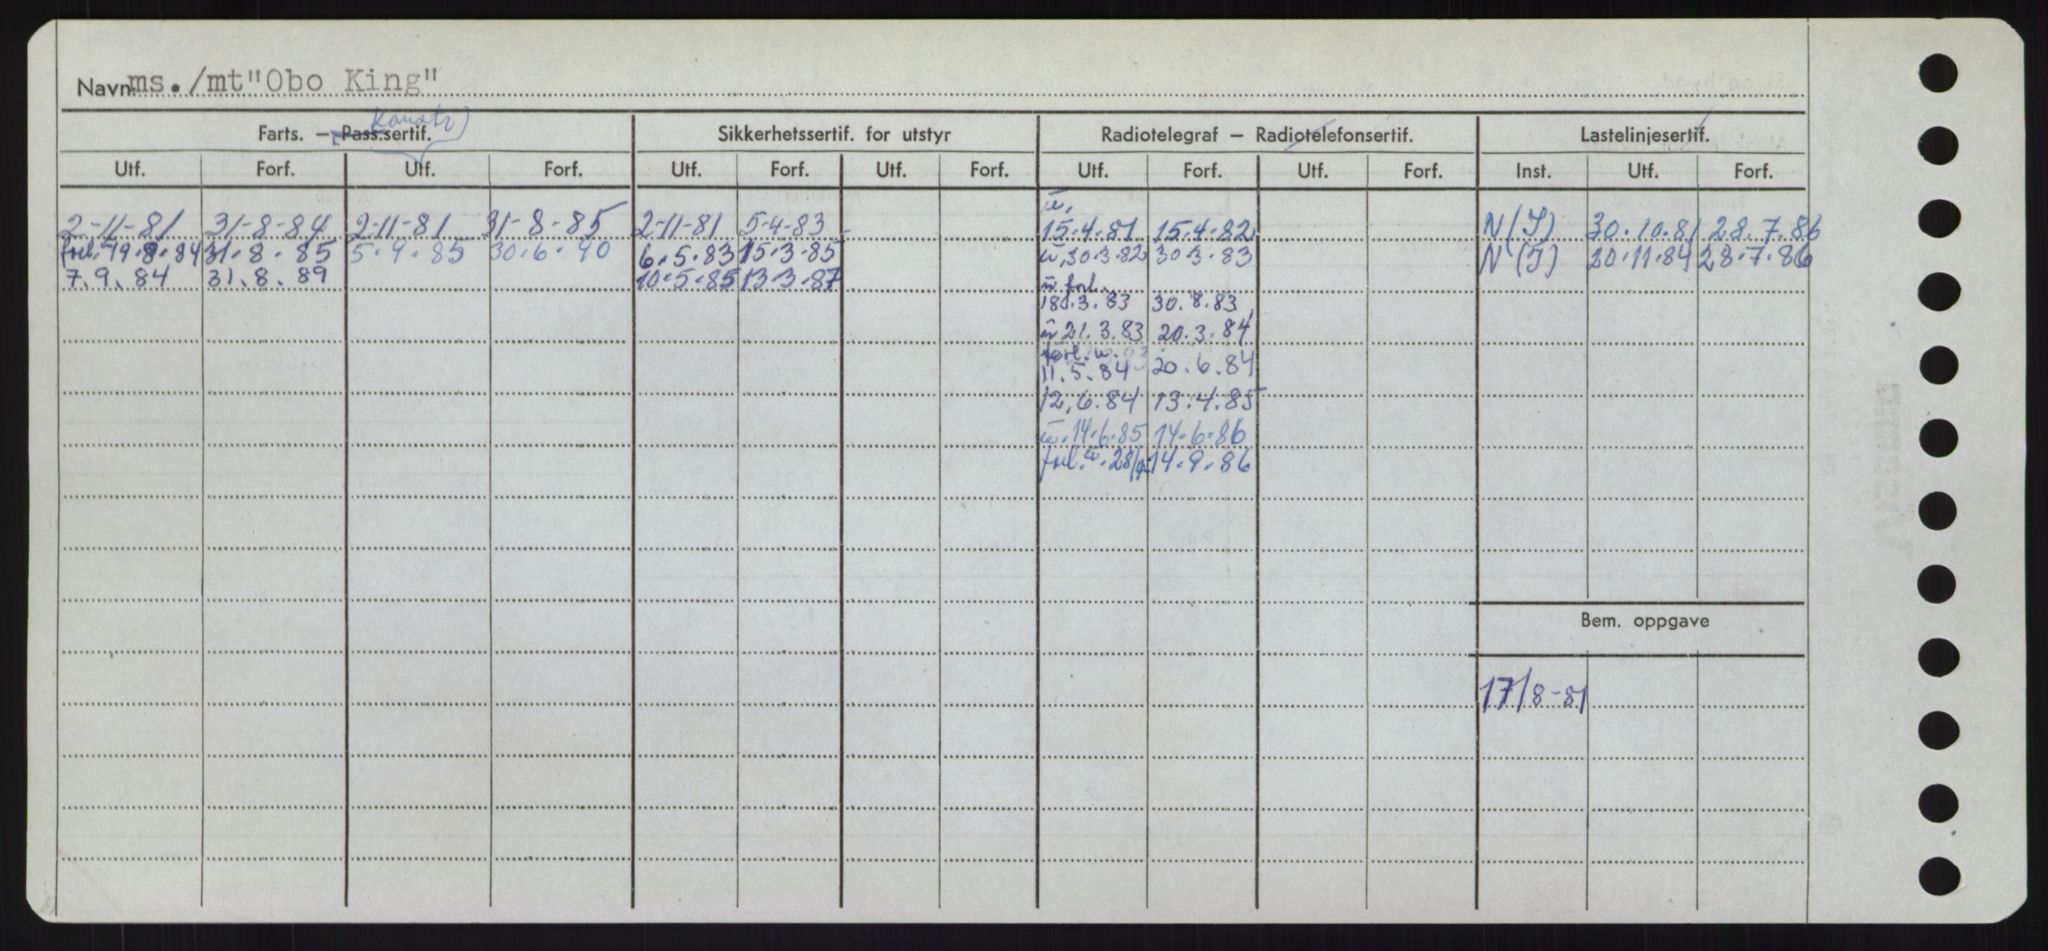 Navn ms./mt "Obo King"
Konstr)
Farts. — Pass.sertif. Sikkerhetssertif. for utstyr Radiotelegraf — Radiotelefonsertif. Lastelinjesertif.
Utf. Forf. Utf. Forf. Utf. Forf. Utf. Forf. Utf. Forf. Utf. Forf. Inst. Utf. Forf.
w.
2-11-81 31-8-84 2-11-81 31-8-85 2-11-81 5-4-83 15.4.81 15.4.82 N(I) 30.10.81 28.7.86
forl. 19.8.84 31.8.85 5.9.85 30.6.90 6.5.83 15.3.85 w. 30.3.82 30.3.83 N(I) 20.11.84 28.7.86
7.9.84 31.8.89 10.5.85 13.3.87 w forl.
18.3.83 30.8.83
w 21.3.83 20.3.84
forl. w.
11.5.84 20.6.84
12.6.84 13.4.85
w. 14.6.85 14.6.86
forl. w. 28/ 14.9.86
Bem. oppgave
17/8-81